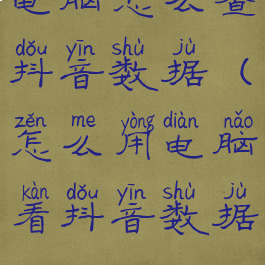 电脑怎么查
dǒu yīn shù jù
抖音数据（
zěn me yòng diàn nǎo
怎么用电脑
kàn dǒu yīn shù jù
看抖音数据